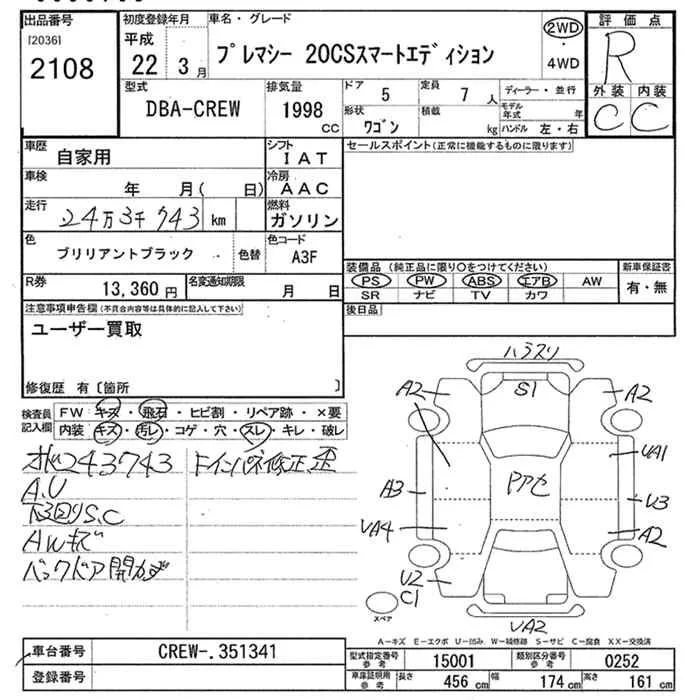 出品番号
[2036]
2108
初度登録年月
平成
22 年 3 月
車名・グレード
プレマシー 20CSスマートエディション
2WD
・
4WD
評価点
R
外装 内装
C C
型式
DBA-CREW
排気量
1998 CC
ドア 5
定員 7 人
形状 ワゴン
積載 kg
ディーラー・並行
モデル年式 年
ハンドル 左・右
車歴
自家用
シフト
IAT
車検
年 月( 日)
冷房
AAC
走行
24万3千743 km
燃料
ガソリン
色
ブリリアントブラック
色替
色コード
A3F
R券
13,360 円
名変通知期限
月 日
セールスポイント(正常に機能するものに限ります)
装備品 (純正品に限り○をつけてください)
PS PW ABS エアB AW
SR ナビ TV カワ
新車保証書
有・無
後日品
注意事項申告欄(不具合内容等は具体的に記入して下さい)
ユーザー買取
修復歴 有〔箇所 〕
検査員記入欄
FW キズ・飛石・ヒビ割・リペア跡・×要
内装 キズ・汚レ・コゲ・穴・スレ・キレ・破レ
243743
A.U
下回りS.C
AWキズ
バックドア開かず
修正、歪
ハラスリ
S1
A2
A2
UA1
A3
PPセ
U3
UA4
A2
U2
C1
スペア
UA2
A-キズ E-エクボ U-凹み W-補修跡 S-サビ C-腐食 XX-交換済
車台番号
CREW-.351341
登録番号
型式指定番号 参考
15001
類別区分番号 参考
0252
車庫証明用 参考
長さ 456 cm
幅 174 cm
高さ 161 cm